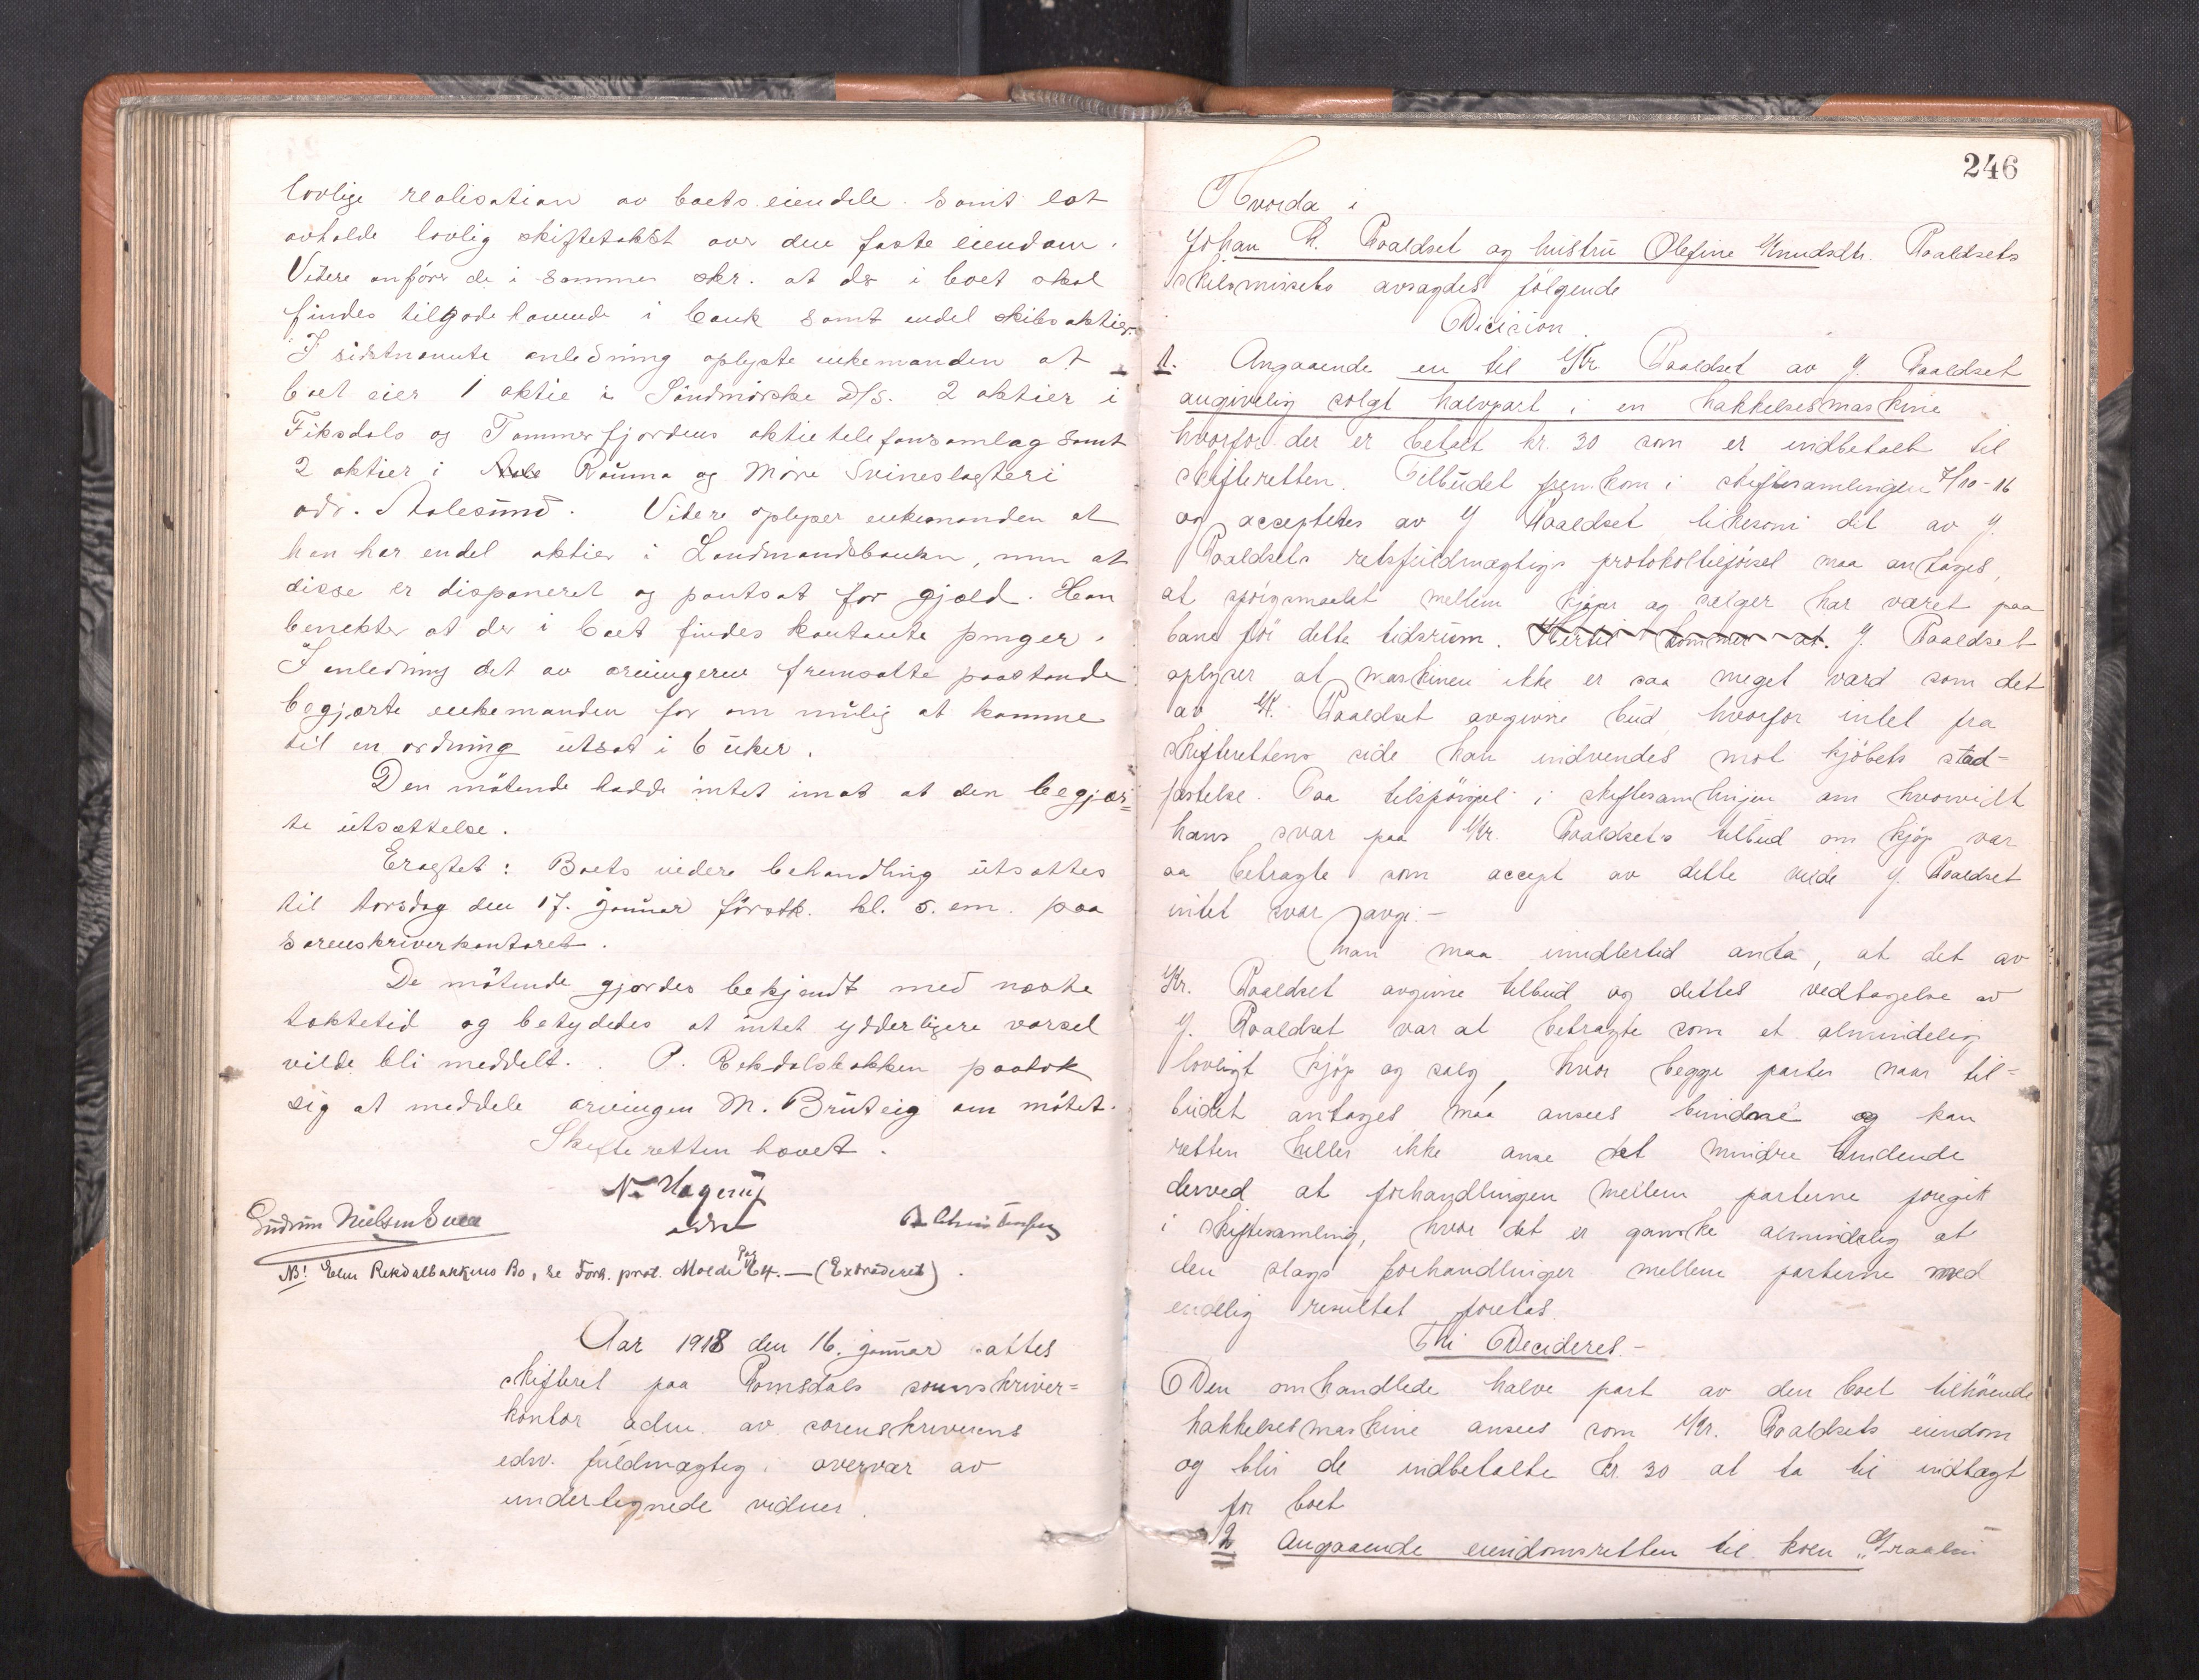 lovlige realisation av boets eiendele samt lot
avholde lovlig skiftetakst over den faste eiendom.
Videre anförer de i samme skr. at der i boet skal
findes tilgodehavende i bank samt endel skibsaktier.
I sidstnevnte anledning oplyste enkemanden at
boet eier 1 aktie i Söndmörske D/S. 2 aktier i
Fiksdals og Tommerfjordens aktietelefonsamlag samt
2 aktier i Rauma og Möre Svineslagteri
adr. Aalesund. Videre oplyser enkemanden at
han har endel aktier i Landmandsbanken, men at
disse er disponeret og pantsat for gjæld. Han
benekter at der i boet findes kontante penger.
I anledning det av arvingerne fremsatte paastande
begjærte enkemanden for om mulig at komme
til en ordning utsat i 6 uker.
Den mötende hadde intet imot at den begjær=
te utsættelse.
Eragtet: Boets videre behandling utsattes
til torsdag den 17. januar förstk. kl. 5. em. paa
sorenskriverkontoret.
De mötende gjordes bekjendt med næste
taktetid og betydedes at intet ydderligere varsel
vilde bli meddelt. P. Rekdalsbakken paatok
sig at meddele arvingen M. Bruteig om mötet.
Skifteretten hævet.
N. Hagerup
edsv
Gudrun Nielsen B. Christensen
NB! Elen Rekdalbakkens Bo, se Forh. prot. Molde Pag 64. — (Extraderet).
Aar 1918 den 16. januar sattes
skifteret paa Romsdals sorenskriver=
kontor adm. av sorenskriverens
edsv. fuldmægtig i overvær av
undertegnede vidner.
246
Hvorda i
Johan K. Roaldset og hustru Olefine Knudsdtr. Roaldsets
skilsmissebo avsagdes fölgende
Decision.
1. Angaaende en til Kr Roaldset av J. Roaldset
angivelig solgt halvpart i en hakkelsesmaskine
hvorfor der er betalt kr. 30 som er indbetalt til
skifteretten. Tilbudet fremkom i skiftesamlingen 7/10-16
og accepteres av J Roaldset likesom det av J.
Roaldsets retsfuldmægtigs protokoltilförsel maa antages,
at spörgsmaalet mellem kjöper og sælger har været paa
bane för dette tidsrum. Hertil kommer at. J. Roaldset
oplyser at maskinen ikke er saa meget værd som det
av K. Roaldset avgivne bud hvorfor intet fra
skifterettens side kan indvendes mot kjöbets stad=
fæstelse. Paa tilspörgsel i skiftesamlingen om hvorvidt
hans svar paa Kr. Roaldsets tilbud om kjöp var
aa betragte som accept av dette vilde J. Roaldset
intet svar avgi. –
Man maa imidlertid anta, at det av
Kr. Roaldset avgivne tilbud og dettes vedtagelse av
J. Roaldset var at betragte som et almindelig
lovligt kjöp og salg, hvor begge parter naar til=
budet antages maa ansees bundne og kan
retten heller ikke anse det mindre bindende
derved at forhandlingen mellem parterne foregik
i skiftesamling, hvor det er ganske almindelig at
den slags forhandlinger mellem parterne med
endelig resultat foretas.
Thi Decideres. –
Den omhandlede halve part av den boet tilhörende
hakkelsesmaskine ansees som Kr. Roaldsets eiendom
og blir de indbetalte kr. 30 at ta til indtægt
for boet
2 Angaaende eiendomsretten til koen „Graalin